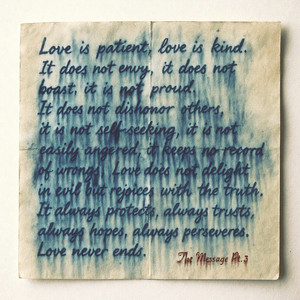 Love is patient, love is kind.
It does not envy, it does not
boast, it is not proud.
It does not dishonor others,
it is not self-seeking, it is not
easily angered, it keeps no record
of wrongs. Love does not delight
in evil but rejoices with the truth.
It always protects, always trusts,
always hopes, always perseveres.
Love never ends.
The Message Pt.3